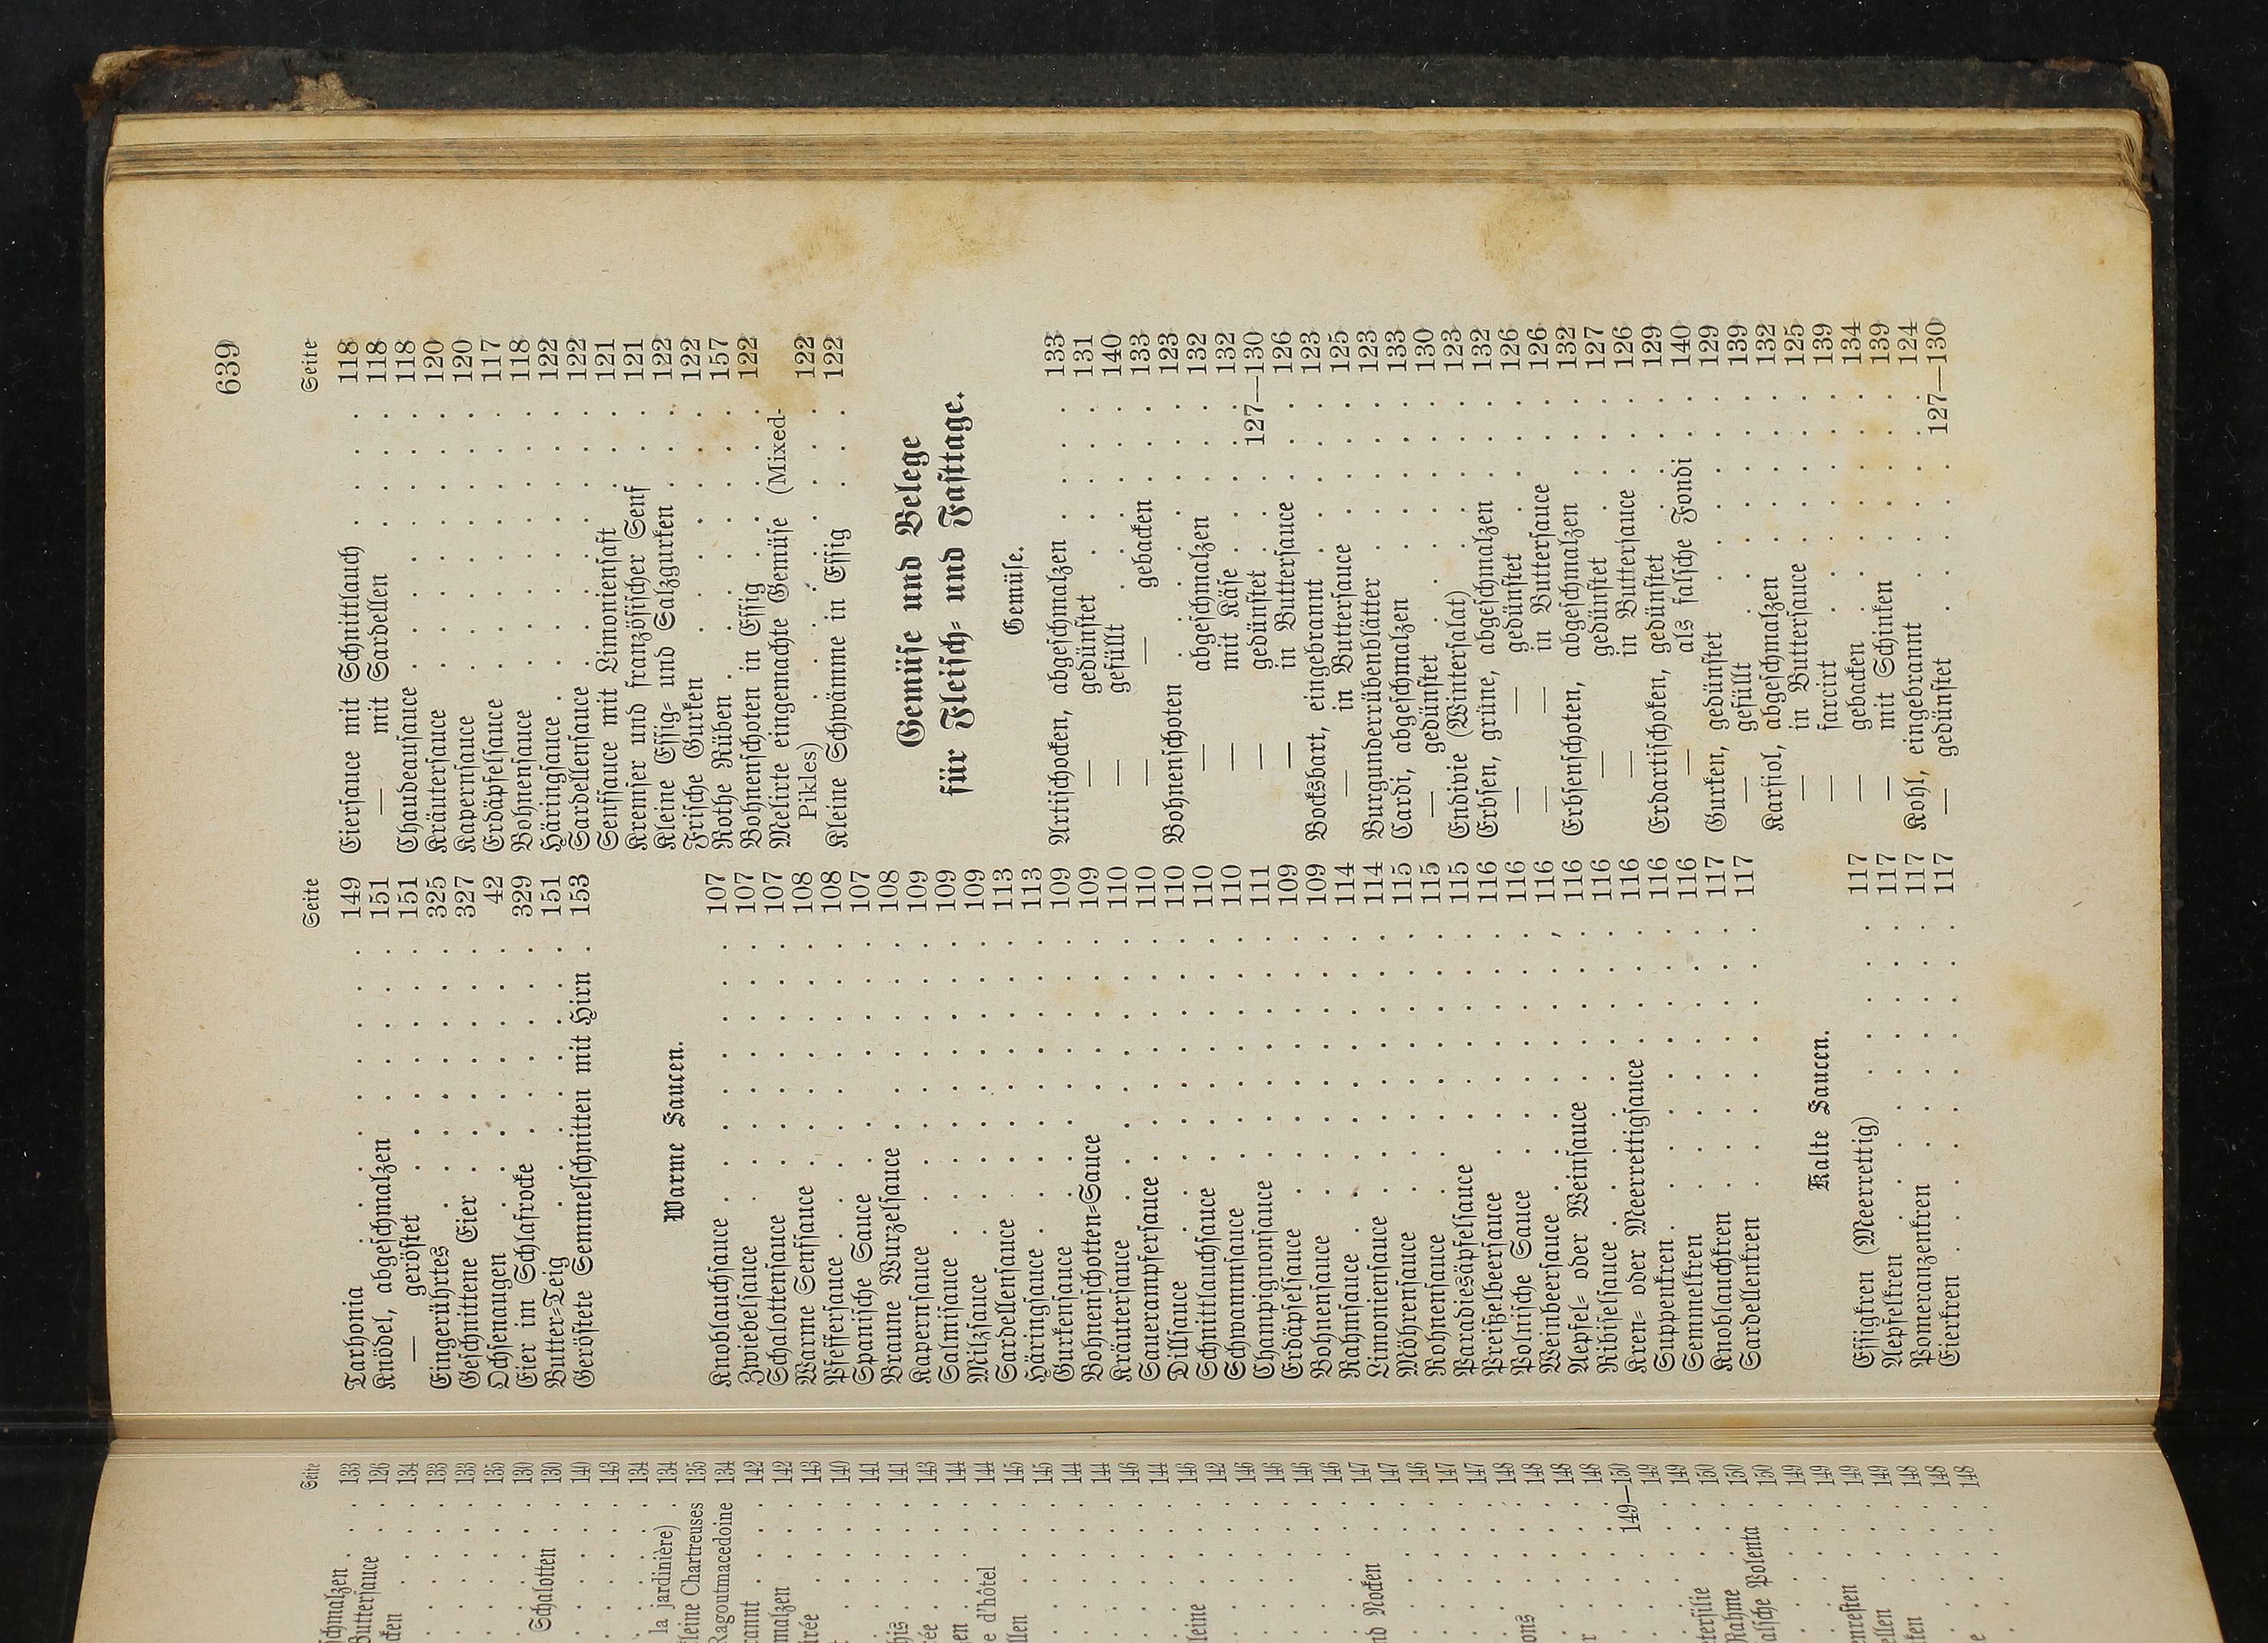 639
Seite
Tarhonia . . . . . . . . . 149
Knödel, abgeschmalzen . . . . . . 151
— geröstet . . . . . . . . 151
Eingerührtes . . . . . . . . 325
Geschnittene Eier . . . . . . . 327
Ochsenaugen . . . . . . . . 42
Eier im Schlafrocke . . . . . . . 329
Butter-Teig . . . . . . . . 151
Geröstete Semmelschnitten mit Hirn . 153
Warme Saucen.
Knoblauchsauce . . . . . . . . 107
Zwiebelsauce . . . . . . . . 107
Schalottensauce . . . . . . . . 107
Warme Senfsauce . . . . . . . 108
Pfeffersauce . . . . . . . . 108
Spanische Sauce . . . . . . . 107
Braune Wurzelsauce . . . . . . 108
Kapernsauce . . . . . . . . 109
Salmisauce . . . . . . . . 109
Milzsauce . . . . . . . . 109
Sardellensauce . . . . . . . . 113
Häringsauce . . . . . . . . 113
Gurkensauce . . . . . . . . 109
Bohnenschotten-Sauce . . . . . . 109
Kräutersauce . . . . . . . . 110
Sauerampfersauce . . . . . . . 110
Dillsauce . . . . . . . . 110
Schnittlauchsauce . . . . . . . 110
Schwammsauce . . . . . . . 110
Champignonsauce . . . . . . . 111
Erdäpfelsauce . . . . . . . . 109
Bohnensauce . . . . . . . . 109
Rahmsauce . . . . . . . . 114
Limoniensauce . . . . . . . . 114
Möhrensauce . . . . . . . . 115
Rohnensauce . . . . . . . . 115
Paradiesäpfelsauce . . . . . . . 115
Preißelbeersauce . . . . . . . 116
Polnische Sauce . . . . . . . 116
Weinbeersauce . . . . . . . . 116
Aepfel- oder Weinsauce . . . . . 116
Ribiselsauce . . . . . . . . 116
Kren- oder Meerrettigsauce . . . . 116
Suppenkren . . . . . . . . 116
Semmelkren . . . . . . . . 116
Knoblauchkren . . . . . . . . 117
Sardellenkren . . . . . . . . 117
Kalte Saucen.
Essigkren (Meerrettig) . . . . . . 117
Aepfelkren . . . . . . . . 117
Pomeranzenkren . . . . . . . 117
Eierkren . . . . . . . . 117
Seite
Eiersauce mit Schnittlauch . . . . 118
— mit Sardellen . . . . . 118
Chaudeausauce . . . . . . . 118
Kräutersauce . . . . . . . . 120
Kapernsauce . . . . . . . . 120
Erdäpfelsauce . . . . . . . . 117
Bohnensauce . . . . . . . . 118
Häringsauce . . . . . . . . 122
Sardellensauce . . . . . . . . 122
Senfsauce mit Limoniensaft . . . . 121
Kremser und französischer Senf . . . 121
Kleine Essig- und Salzgurken . . . 122
Frische Gurken . . . . . . . 122
Rothe Rüben . . . . . . . . 157
Bohnenschoten in Essig . . . . . 122
Melirte eingemachte Gemüse (Mixed-
Pikles) . . . . . . . . 122
Kleine Schwämme in Essig . . . . 122
Gemüse und Belege
für Fleisch- und Fasttage.
Gemüse.
Artischocken, abgeschmalzen . . . . 133
— gedünstet . . . . . 131
— gefüllt . . . . . . 140
— — gebacken . . . 133
Bohnenschoten . . . . . . . 123
— abgeschmalzen . . . . 132
— mit Käse . . . . . 132
— gedünstet . . . . 127—130
— in Buttersauce . . . . 126
Bocksbart, eingebrannt . . . . . 123
— in Buttersauce . . . . . 125
Burgunderrübenblätter . . . . . 123
Cardi, abgeschmalzen . . . . . . 133
— gedünstet . . . . . . . 130
Endivie (Wintersalat) . . . . . . 123
Erbsen, grüne, abgeschmalzen . . . 132
— — gedünstet . . . . 126
— — in Buttersauce . . . 126
Erbsenschoten, abgeschmalzen . . . 132
— gedünstet . . . . . 127
— in Buttersauce . . . . 126
Erdartischoken, gedünstet . . . . . 129
— als falsche Fondi . . . 140
Gurken, gedünstet . . . . . . . 129
— gefüllt . . . . . . . 139
Karfiol, abgeschmalzen . . . . . 132
— in Buttersauce . . . . . 125
— farcirt . . . . . . . 139
— gebacken . . . . . . . 134
— mit Schinken . . . . . . 139
Kohl, eingebrannt . . . . . . . 124
— gedünstet . . . . . 127—130
Seite
schmalzen . . . 133
Buttersauce . . 126
134
133
133
135
130
Schalotten . . 130
140
143
134
la jardinière) . 134
kleine Chartreuses 135
Ragoutmacedoine 134
142
malzen . . . 142
143
140
141
141
143
144
e d'hôtel . . 144
145
145
144
144
144
146
144
146
leine . . . 142
146
146
146
146
nd Nocken . . 147
147
146
147
147
148
148
148
148
149—150
149
149
150
Rahme . . . 150
Polenta . 150
149
149
149
149
148
148
148